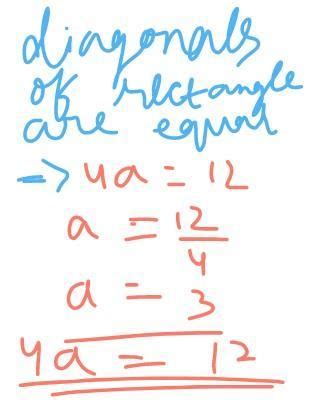 diagonals
of rectangle
are equal
=> 4a = 12
a = 12/4
a = 3
4a = 12